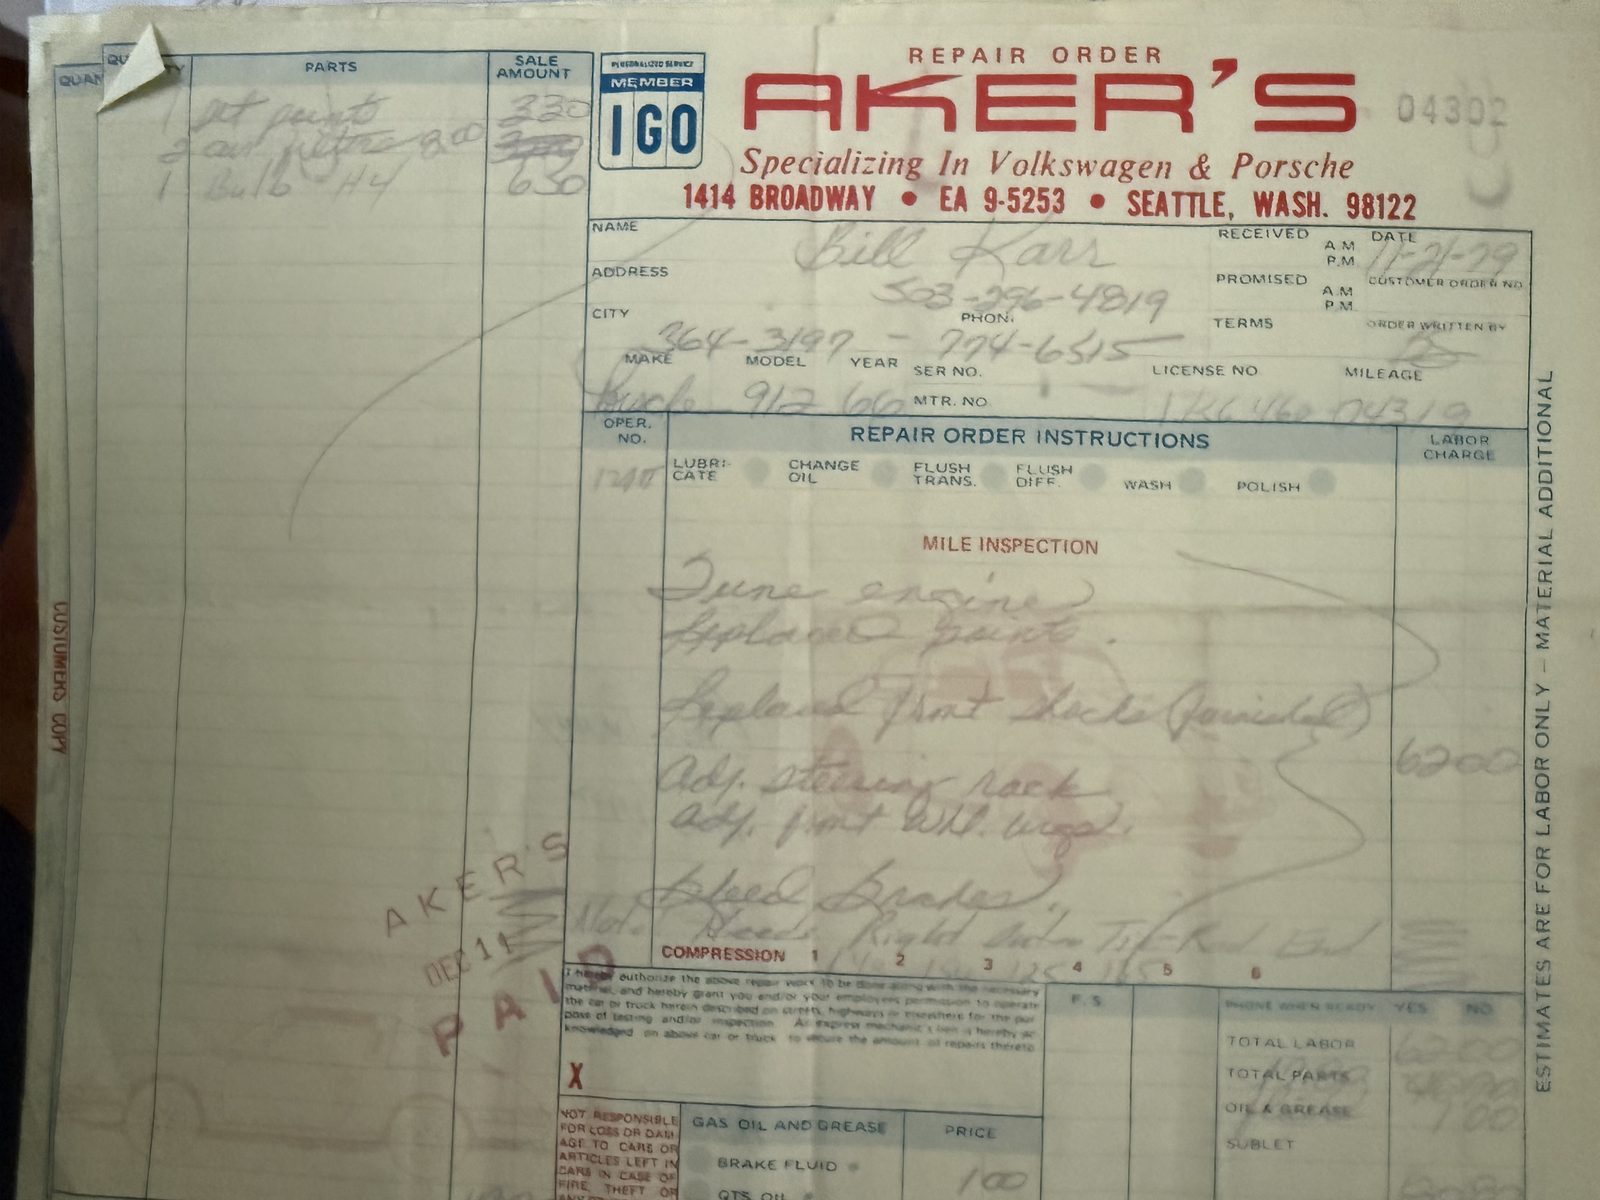 QUAN
QU TY PARTS SALE AMOUNT
1 set points 330
2 air filters 800
1 Bulb H4 650
PERSONALIZED SERVICE
MEMBER
IGO
REPAIR ORDER
AKER'S
04302
Specializing In Volkswagen & Porsche
1414 BROADWAY • EA 9-5253 • SEATTLE, WASH. 98122
NAME Bill Karr
RECEIVED A.M P.M DATE 11-21-79
ADDRESS 503-296-4819
PROMISED A.M P.M. CUSTOMER ORDER NO.
CITY PHONE
TERMS ORDER WRITTEN BY
364-3197 - 774-6515
MAKE MODEL YEAR SER NO. LICENSE NO MILEAGE
Porsche 912 66 MTR. NO. 04319
OPER. NO. REPAIR ORDER INSTRUCTIONS LABOR CHARGE
LUBRI-CATE CHANGE OIL FLUSH TRANS. FLUSH DIFF. WASH POLISH
MILE INSPECTION
Tune engine
Replaced points.
Replaced front shocks (furnished)
6200
Adj. steering rack
Adj. front whl. brgs.
Bleed Brakes.
Note Needs Right Outer Tie-Rod End
COMPRESSION 1 2 3 4 5 6
AKER'S
DEC 11
PAID
I hereby authorize the above repair work to be done along with the necessary
material, and hereby grant you and/or your employees permission to operate
the car or truck herein described on streets, highways or elsewhere for the pur
pose of testing and/or inspection. An express mechanic's lien is hereby ac
knowledged on above car or truck to secure the amount of repairs thereto
X
F.S.
PHONE WHEN READY YES NO
TOTAL LABOR 6200
TOTAL PARTS
OIL & GREASE 1 00
SUBLET
NOT RESPONSIBLE
FOR LOSS OR DAM-
AGE TO CARS OR
ARTICLES LEFT IN
CARS IN CASE OF
FIRE, THEFT OR
GAS OIL AND GREASE PRICE
BRAKE FLUID 100
QTS OIL
CUSTOMERS COPY
ESTIMATES ARE FOR LABOR ONLY - MATERIAL ADDITIONAL